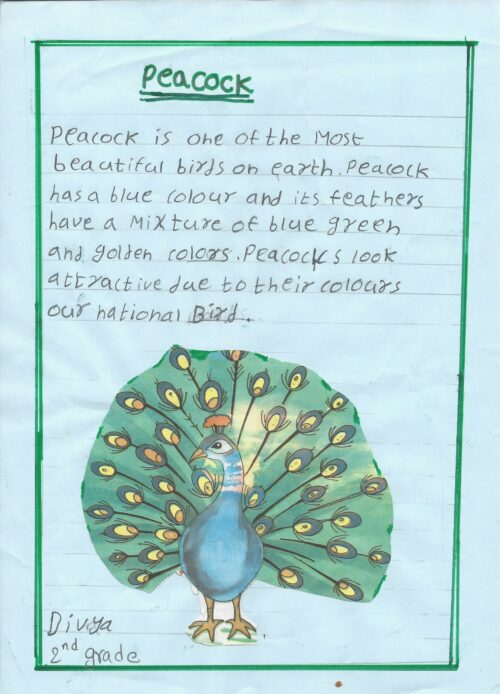 Peacock
Peacock is one of the Most
beautiful birds on earth. Peacock
has a blue colour and its feathers
have a Mixture of blue green
and golden colors. Peacocks look
attractive due to their colours
our national Bird.
Divya
2nd grade